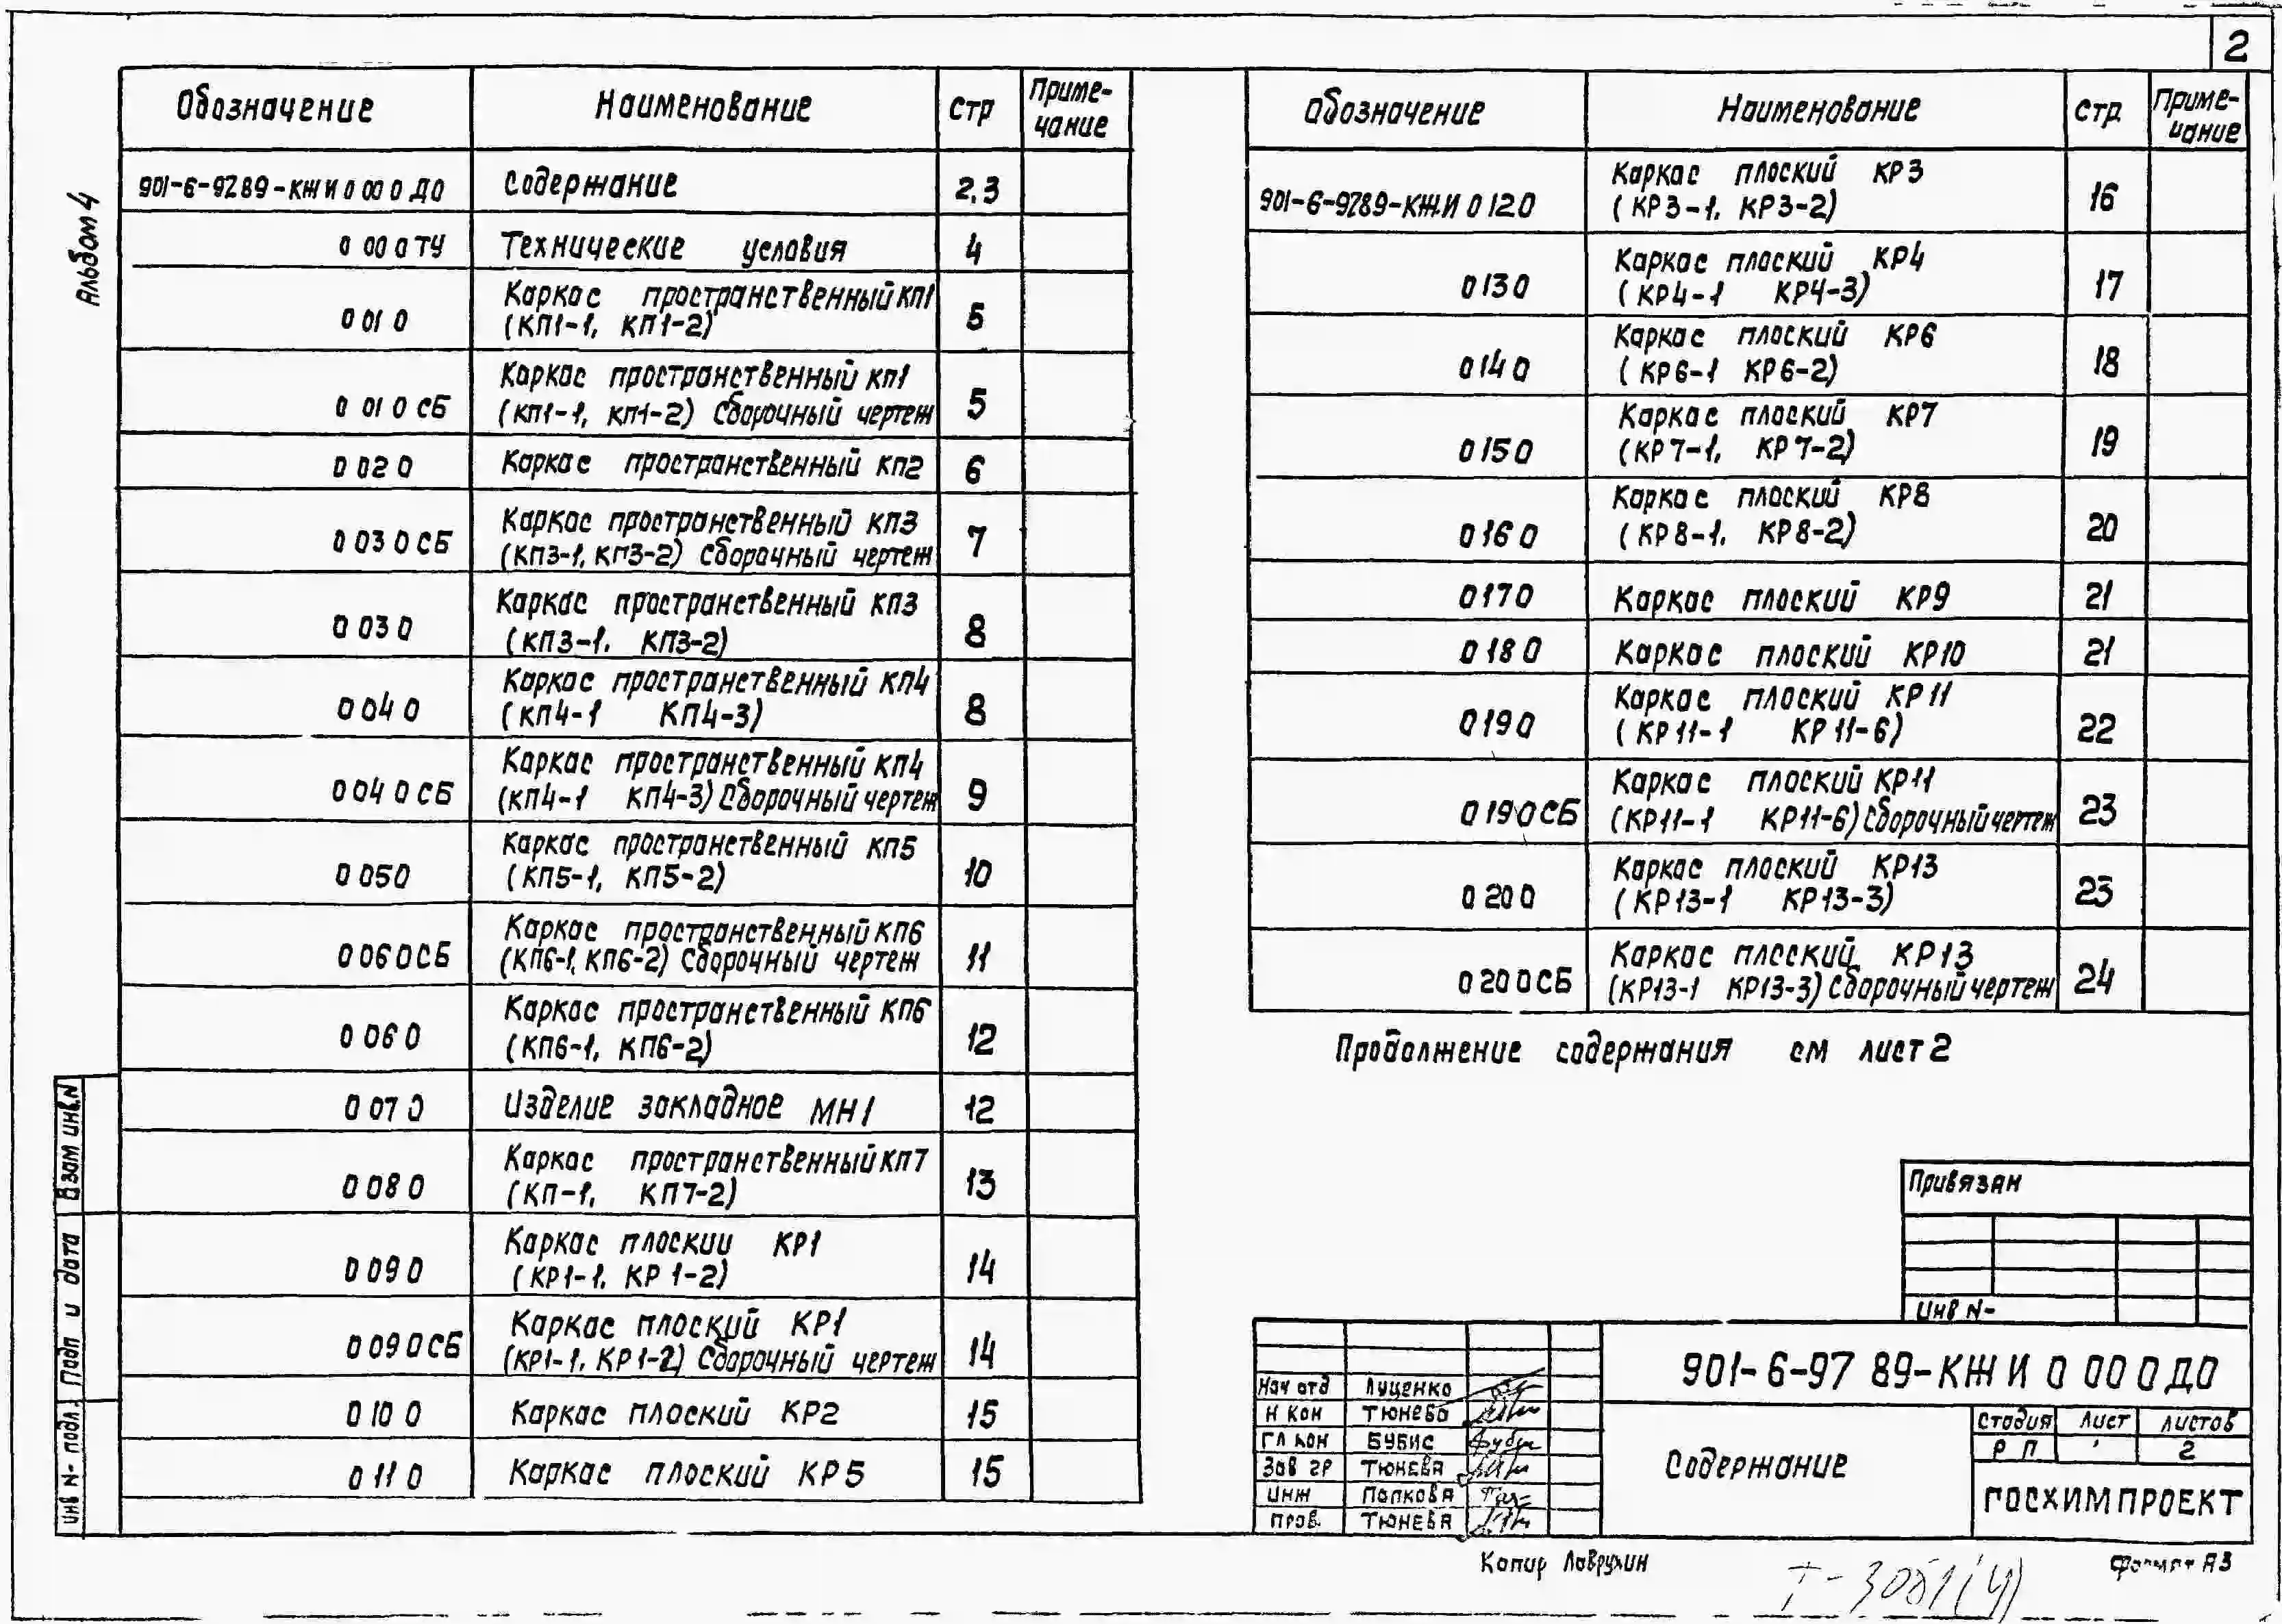 2
Альбом 4
Обозначение Наименование Стр Приме-
чание
901-6-9289-КЖИ 0 00 0 ДО Содержание 2,3
0 00 0 ТУ Технические условия 4
0 01 0 Каркас пространственный КП1
(КП1-1, КП1-2) 5
0 01 0 СБ Каркас пространственный КП1
(КП1-1, КП1-2) Сборочный чертеж 5
0 02 0 Каркас пространственный КП2 6
0 03 0 СБ Каркас пространственный КП3
(КП3-1, КП3-2) Сборочный чертеж 7
0 03 0 Каркас пространственный КП3
(КП3-1, КП3-2) 8
0 04 0 Каркас пространственный КП4
(КП4-1 КП4-3) 8
0 04 0 СБ Каркас пространственный КП4
(КП4-1 КП4-3) Сборочный чертеж 9
0 05 0 Каркас пространственный КП5
(КП5-1, КП5-2) 10
0 06 0 СБ Каркас пространственный КП6
(КП6-1, КП6-2) Сборочный чертеж 11
0 06 0 Каркас пространственный КП6
(КП6-1, КП6-2) 12
0 07 0 Изделие закладное МН1 12
0 08 0 Каркас пространственный КП7
(КП-1, КП7-2) 13
0 09 0 Каркас плоскии КР1
(КР1-1, КР1-2) 14
0 09 0 СБ Каркас плоский КР1
(КР1-1, КР1-2) Сборочный чертеж 14
0 10 0 Каркас плоский КР2 15
0 11 0 Каркас плоский КР5 15
Обозначение Наименование Стр. Приме-
чание
901-6-9789-КЖИ 0 12 0 Каркас плоский КР3
(КР3-1, КР3-2) 16
0 13 0 Каркас плоский КР4
(КР4-1 КР4-3) 17
0 14 0 Каркас плоский КР6
(КР6-1 КР6-2) 18
0 15 0 Каркас плоский КР7
(КР7-1, КР7-2) 19
0 16 0 Каркас плоский КР8
(КР8-1, КР8-2) 20
0 17 0 Каркас плоский КР9 21
0 18 0 Каркас плоский КР10 21
0 19 0 Каркас плоский КР11
(КР11-1 КР11-6) 22
0 19 0 СБ Каркас плоский КР11
(КР11-1 КР11-6) Сборочный чертеж 23
0 20 0 Каркас плоский КР13
(КР13-1 КР13-3) 23
0 20 0 СБ Каркас плоский КР13
(КР13-1 КР13-3) Сборочный чертеж 24
Продолжение содержания см лист 2
Привязан
Инв N-
901-6-97 89-КЖИ 0 00 0 ДО
Нач отд Луценко
Н кон Тюнева
Гл кон Бубис
Зав гр Тюнева
Инж Полкова
Пров. Тюнева
Содержание
Стадия Лист Листов
Р П 2
ГОСХИМПРОЕКТ
Взам инв.N
Подп и дата
Инв N- подл.
Копир Лаврухин
Формат А3
Т-3081(4)